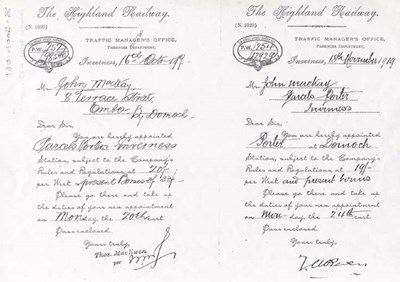 The Highland Railway.
(N. 1020)
TRAFFIC MANAGER'S OFFICE,
PASSENGER DEPARTMENT,
P.W.
Inverness, 16th Octr 191
Mr John Mackay
8 Terrace Street,
Embo
By Dornoch
Dear Sir,
You are hereby appointed
Parcels Porter Inverness
Station, subject to the Company's
Rules and Regulations, at 20/-
per Week & present Bonus of
Please go there and take up
the duties of your new appointment
on Monday, the 20th inst
Pass enclosed.
Yours truly,
Thos. MacEwen
per
The Highland Railway.
(N. 1020)
TRAFFIC MANAGER'S OFFICE,
PASSENGER DEPARTMENT,
P.W.
Inverness, 18th November 1919
Mr John Mackay
Parcels Porter
Inverness
Dear Sir,
You are hereby appointed
Porter at Dornoch
Station, subject to the Company's
Rules and Regulations, at 19/-
per Week and present bonus
Please go there and take up
the duties of your new appointment
on Monday, the 24th inst
Pass enclosed.
Yours truly,